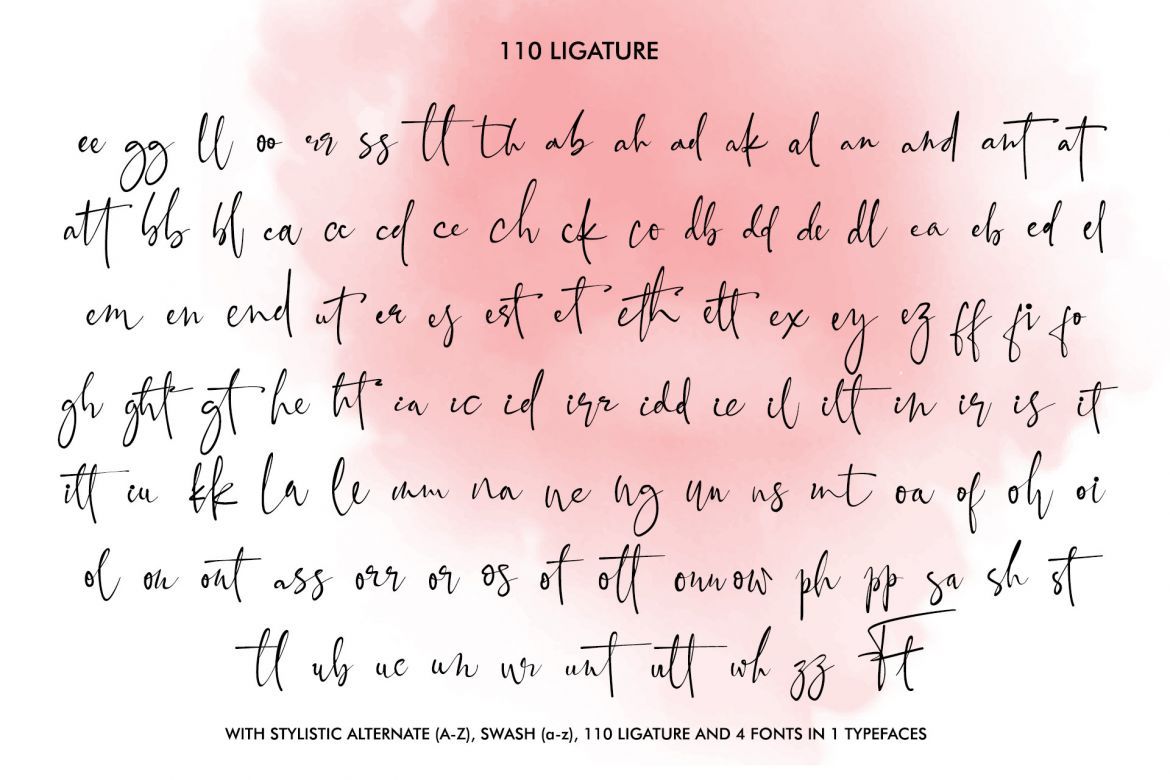 110 LIGATURE
ee gg ll oo rr ss tt th ab ah ad ak al an and ant at
att bb bl ca cc cd ce ch ck co db dd de dl ea eb ed el
em en end ut er es est et eth ett ex ey ez ff fi fo
gh ght gt he ht ia ic id irr idd ie il ilt in ir is it
itt iu kk la le mm na ne ng nn ns nt oa of oh oi
ol on ont ass orr or os ot ott oun ow ph pp sa sh st
tl ub uc un ur unt utt wh zz Ft
WITH STYLISTIC ALTERNATE (A-Z), SWASH (a-z), 110 LIGATURE AND 4 FONTS IN 1 TYPEFACES